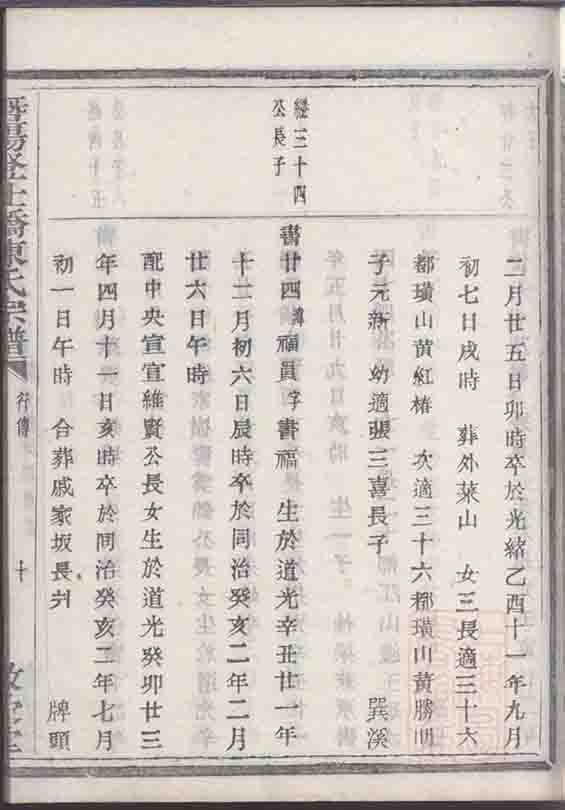 二月廿五日卯時卒於光緒乙酉十一年九月
初七日戌時 葬外萊山 女三長適三十六
都璜山黃紅椿 次適三十六都璜山黃勝明
子元新 幼適張三喜長子 巽溪
縂三十四
公長子
書廿四諱福員字書福 生於道光辛丑廿一年
十二月初六日辰時卒於同治癸亥二年二月
廿六日午時
配中央宣宣維賢公長女生於道光癸卯廿三
年四月十一日亥時卒於同治癸亥二年七月
初一日午時 合葬戚家坂長爿 牌頭
暨陽 橋陳氏宗譜 行傳 十